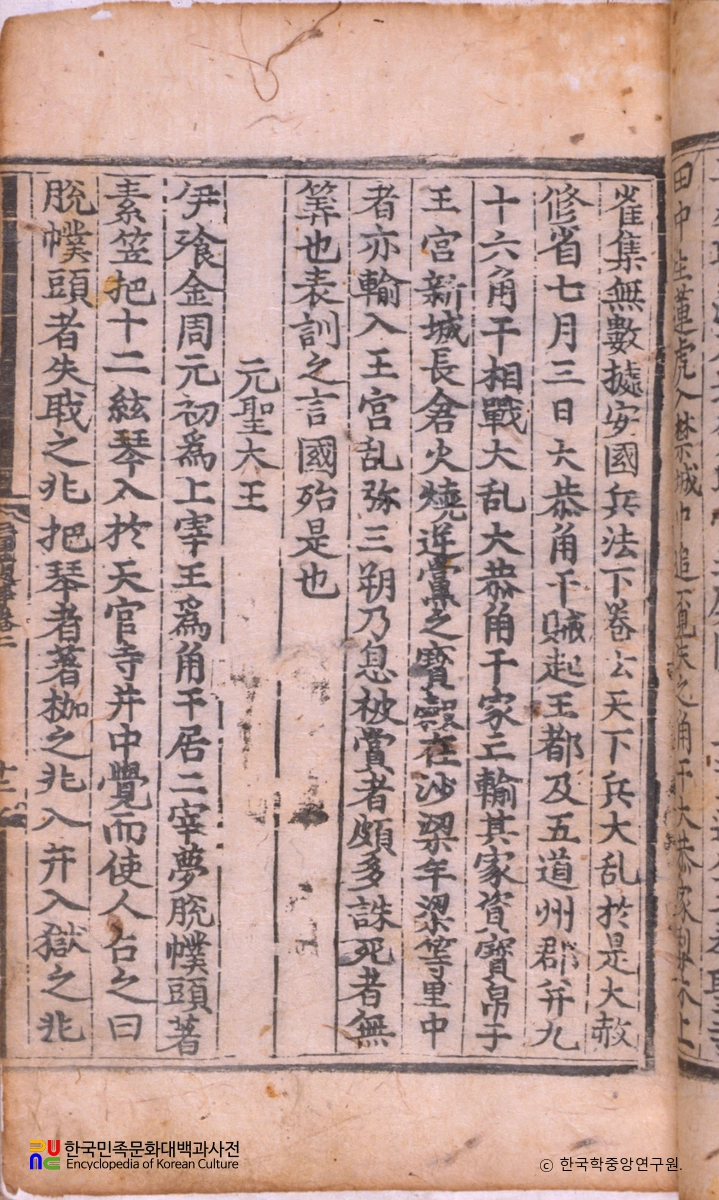 田中生蓮虎入禁城中追覓失之角干大恭家梨木上
雀集無數據安國兵法下卷云天下兵大乱於是大赦
修省七月三日大恭角干賊起王都及五道州郡并九
十六角干相戰大乱大恭角干家亡輸其家資寶帛于
王宮新城長倉火燒逆黨之寶穀在沙梁牟梁等里中
者亦輸入王宮乱弥三朔乃息被賞者頗多誅死者無
筭也表訓之言國殆是也
元聖大王
伊飡金周元初爲上宰王爲角干居二宰夢脫幞頭著
素笠把十二絃琴入於天官寺井中覺而使人占之曰
脫幞頭者失職之兆把琴者著枷之兆入井入獄之兆
한국민족문화대백과사전
Encyclopedia of Korean Culture
© 한국학중앙연구원.